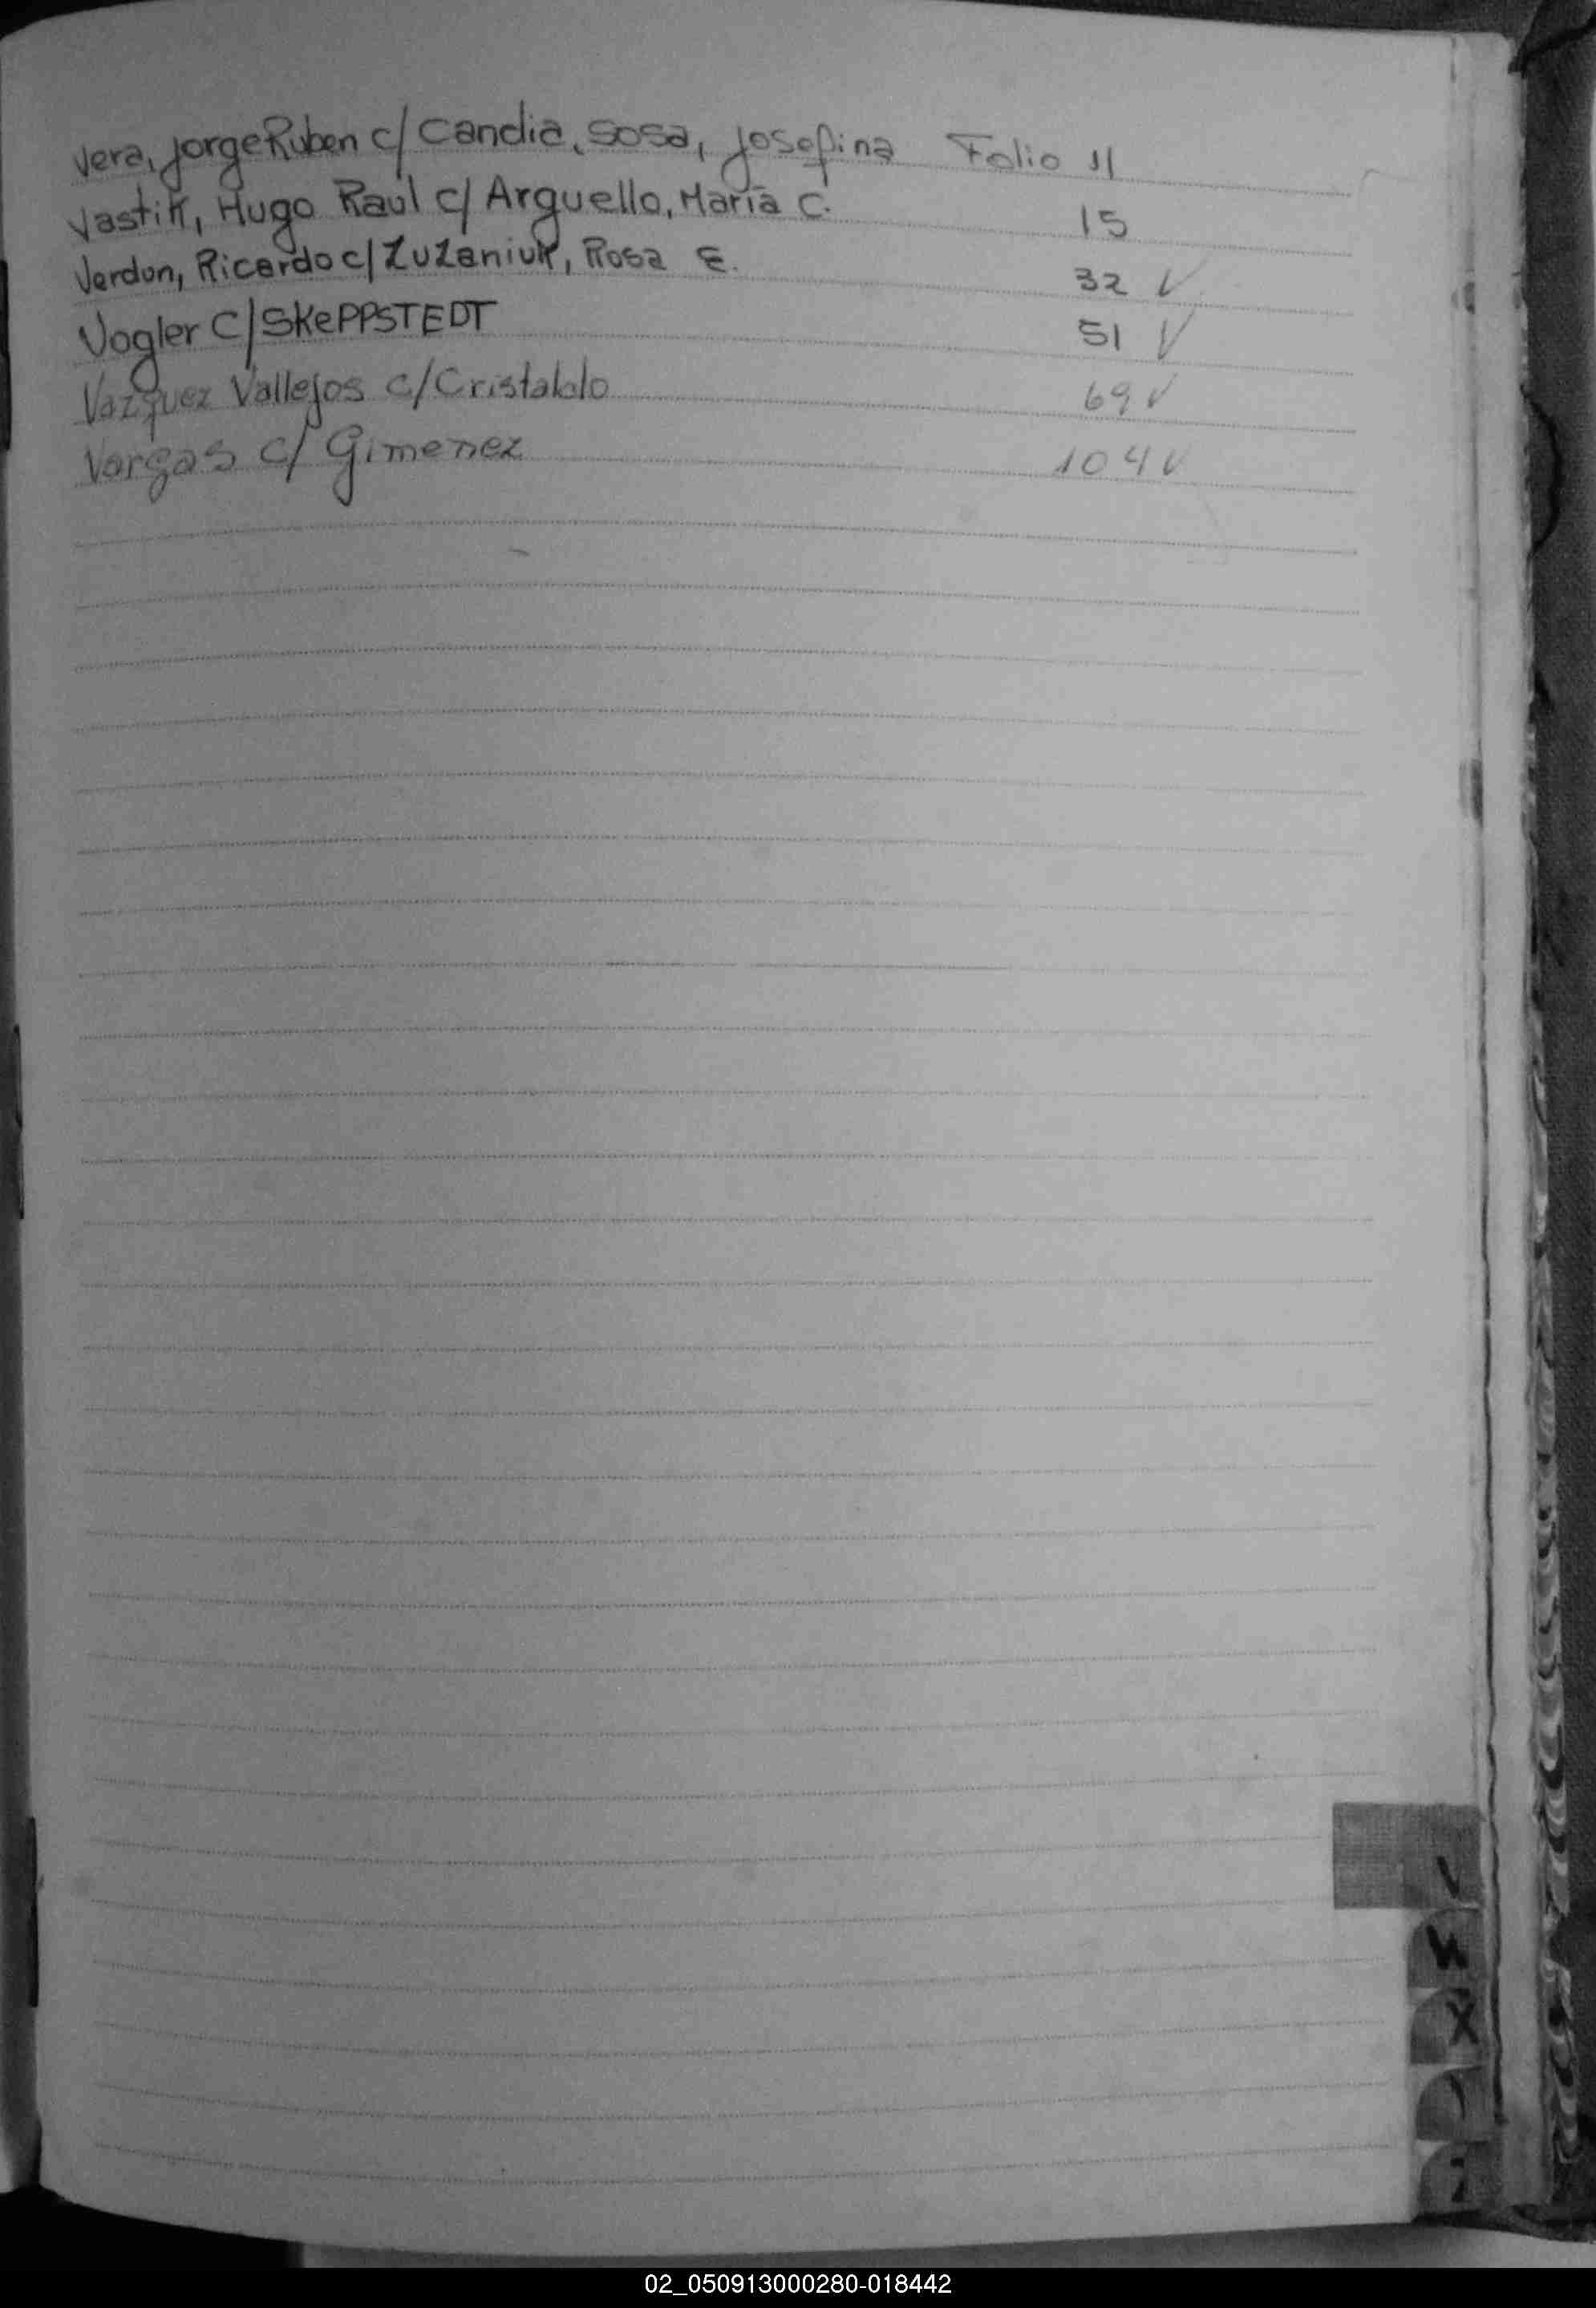 Vera, Jorge Ruben c/ Candia, Sosa, Josefina Folio 11
Vastik, Hugo Raul c/ Arguello, Maria C. 15
Verdun, Ricardo c/ Zuzaniuk, Rosa E. 32 V
Vogler C/ SKePPSTEDT 51 V
Vazquez Vallejos c/ Cristaldo 69 V
Vargas c/ Gimenez 104 V
V
W
X
02_050913000280-018442